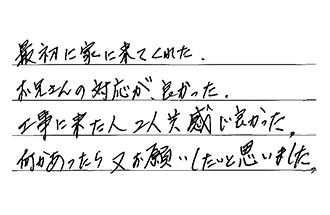 最初に家に来てくれた.
お兄さんの対応が、良かった.
工事に来た人 2人共感じ良かった。
何かあったら又お願いしたいと思いました。